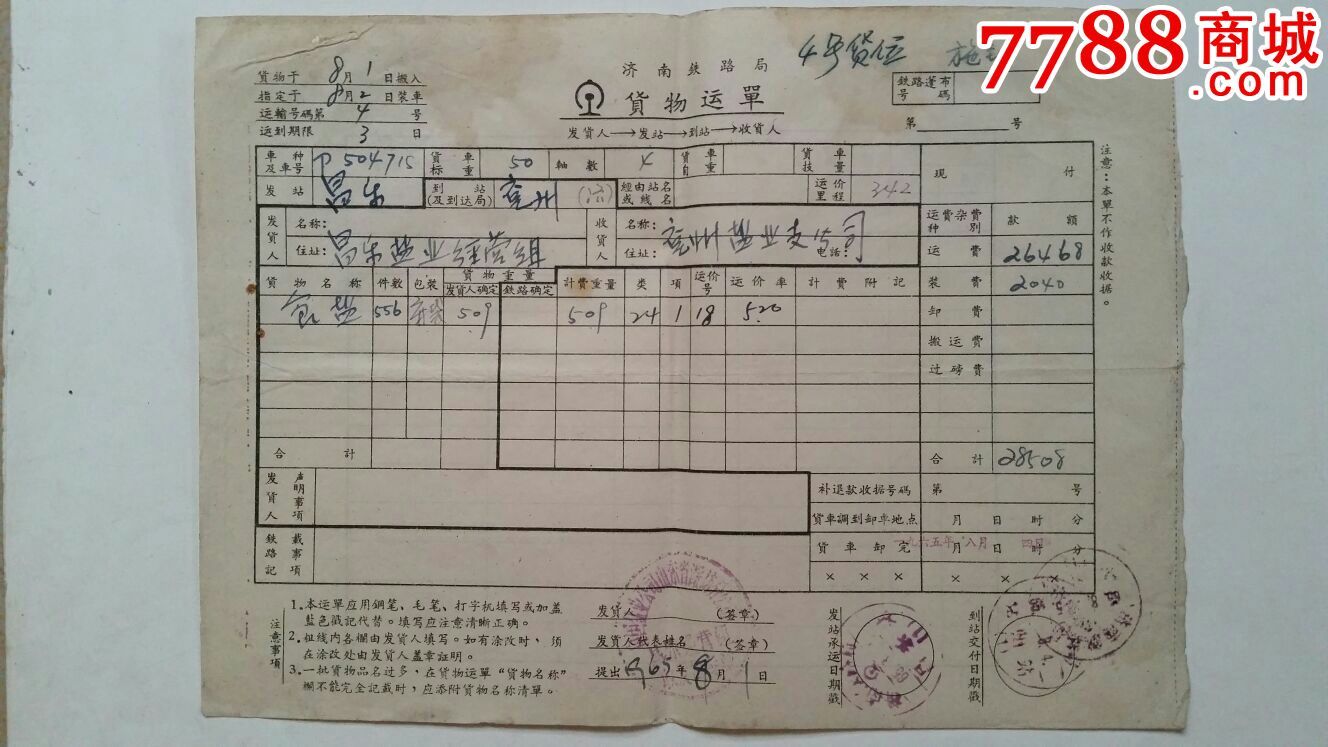 7788商城
.com
4号货位
济南鉄路局
貨物运單
发貨人→发站→到站→收貨人
貨物于8月1日搬入
指定于8月2日装車
运輸号碼第4号
运到期限3日
鉄路蓬布号碼
第 号
車种及車号 P504715 貨車标重 50 軸數 4 貨車自重 貨車技量 現付
发站 昌乐 到站(及到达局) 兗州(济) 經由站名或线名 运价里程 342
发貨人 名称: 住址: 昌乐盐业经营组 收貨人 名称: 住址: 兗州盐业支公司 电話: 运費杂費种別 款額
运費 26468
貨物名称 件數 包裝 貨物重量 发貨人确定 鉄路确定 計費重量 类 項 运价号 运价率 計費附記 装費 2040
食盐 556 50.9 50.9 24 1 18 5.20 卸費
搬运費
过磅費
合計 合計 28508
发貨人声明事項 补退款收据号碼 第 号
貨車調到卸車地点 月 日 时 分
鉄路記載事項 貨車卸完 月 日 时 分
一九六五年八月 四日
× × × × × ×
注意:本單不作收款收据。
注意事項
1.本运單应用鋼笔、毛笔、打字机填写或加盖
藍色戳記代替。填写应注意清晰正确。
2.粗线内各欄由发貨人填写。如有涂改时,須
在涂改处由发貨人盖章証明。
3.一批貨物品名过多,在貨物运單“貨物名称”
欄不能完全記載时,应添附貨物名称清單。
发貨人 (签章)
发貨人代表姓名 (签章)
提出1965年8月1日
发站承运日期戳
到站交付日期戳